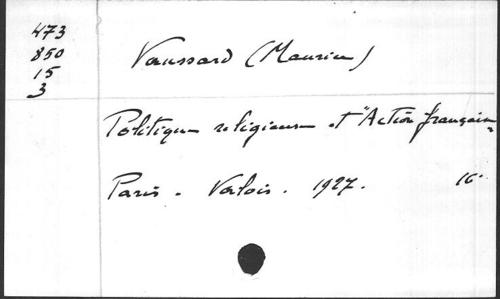 473
850
15
3
Vaussard (Maurice)
Politique religieuse et "Action française"
Paris. Valois. 1927. 16°